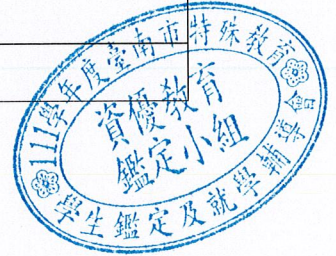 111學年度臺南市特殊教育
學生鑑定及就學輔導會
資優教育
鑑定小組